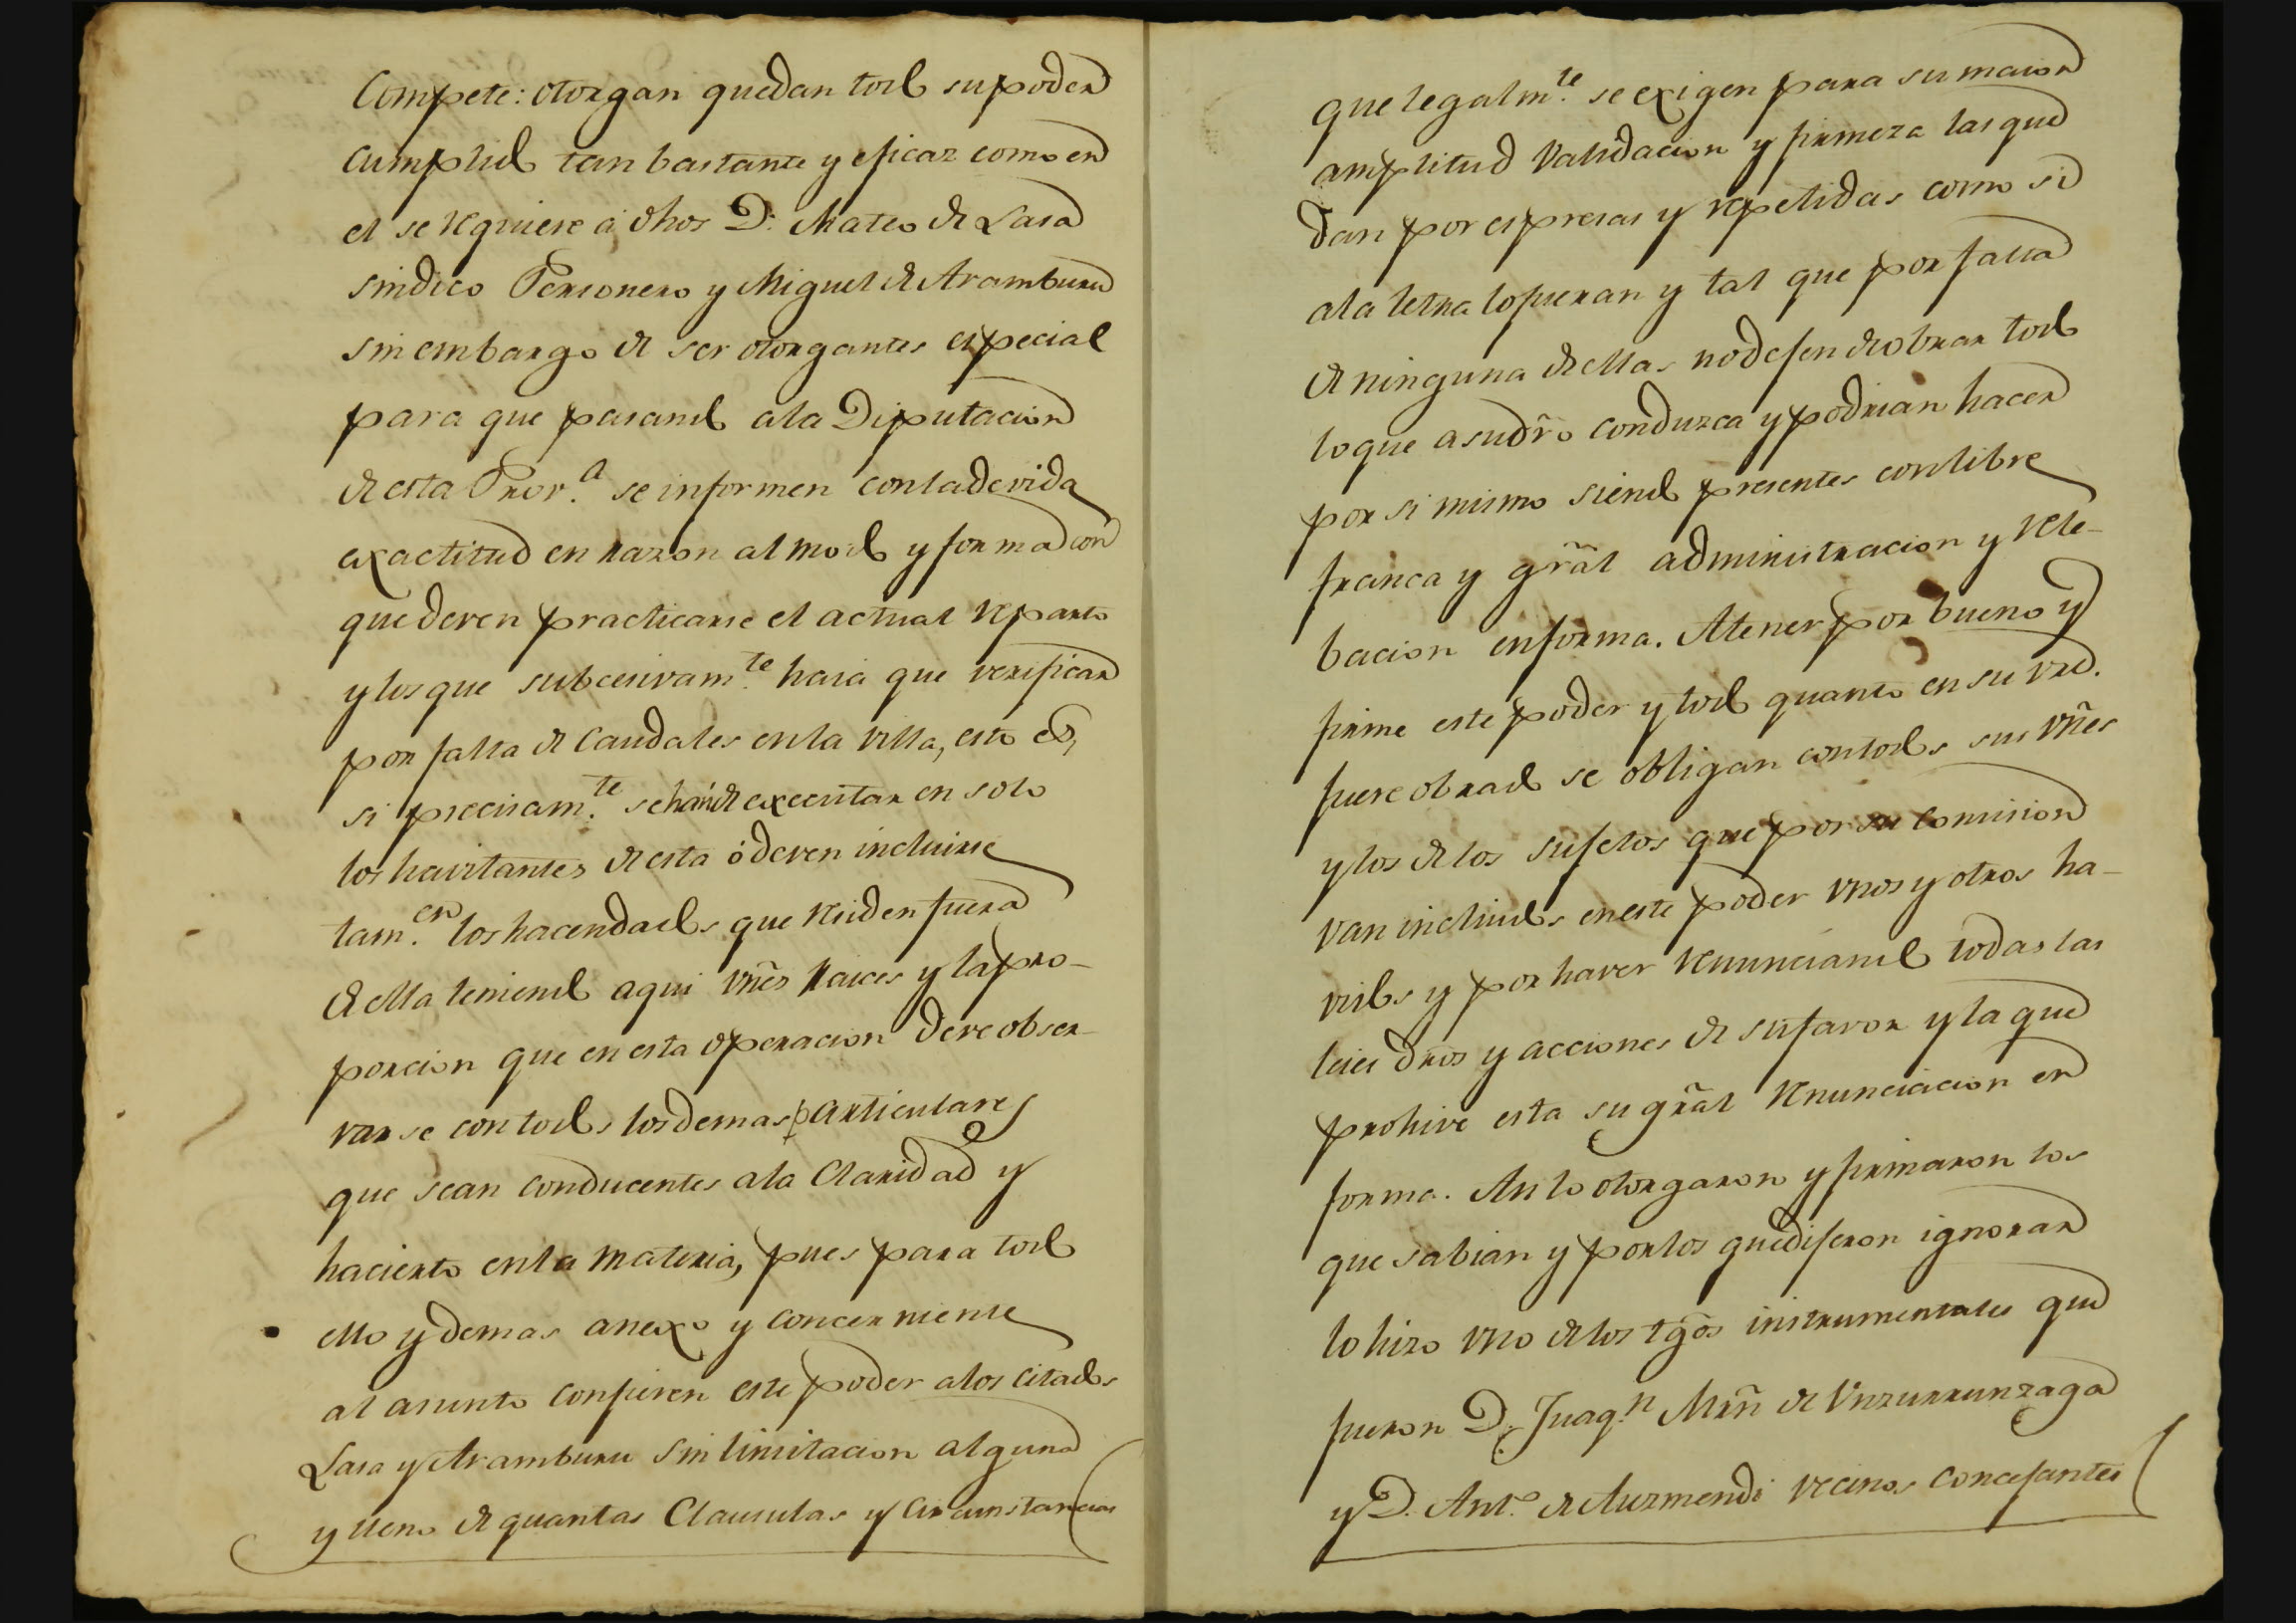 Compete: otorgan que dan todo su poder
cumplido tan bastante y eficaz como en
el se requiere a dhos D.n Mateo de Lasa
sindico Personero y Miguel de Aramburu
sin embargo de ser otorgantes especial
para que pasando a la Diputacion
de esta Prov.a se informen con la devida
exactitud en razon al modo y forma con
que deven practicarse el actual reparto
y los que subcesivam.te haia que verificar
por falta de Caudales en la villa, esto es,
si precisam.te se han de executar en solo
los havitantes de esta ó deven incluirse
tam.en los hacendados que residen fuera
de ella teniendo aqui vñes raices y la pro-
porcion que en esta operacion deve obser-
varse con todos los demas particulares
que sean conducentes a la Claridad y
hacierto en la materia, pues para todo
ello y demas anexo y concerniente
al asunto confieren este poder a los citados
Lasa y Aramburu sin limitacion alguna
y lleno de quantas Clausulas y Circunstancias
que legalm.te se exigen para su maior
amplitud validacion y firmeza las que
dan por espresas y repetidas como si
a la letra lo fueran y tal que por falta
de ninguna de ellas no dejen de obrar todo
lo que a su dr̃o conduzca y podrian hacer
por si mismo siendo presentes con libre
franca y gr̃al administracion y rele-
bacion en forma. A tener por bueno y
firme este poder y todo quanto en su vrd.
fuere obrado se obligan con todos sus vñes
y los de los sujetos que por su comision
van incluidos en este poder vnos y otros ha-
vidos y por haver renunciando todas las
leies dr̃os y acciones de su favor y la que
prohive esta su gr̃al renunciacion en
forma. Asi lo otorgaron y firmaron los
que sabian y por los que dijeron ignorar
lo hizo vno de los tg̃os instrumentales que
fueron D.n Juaq.n Mrñ de Vnzurrunzaga
y D. Ant.o de Auzmendi vecinos concejantes